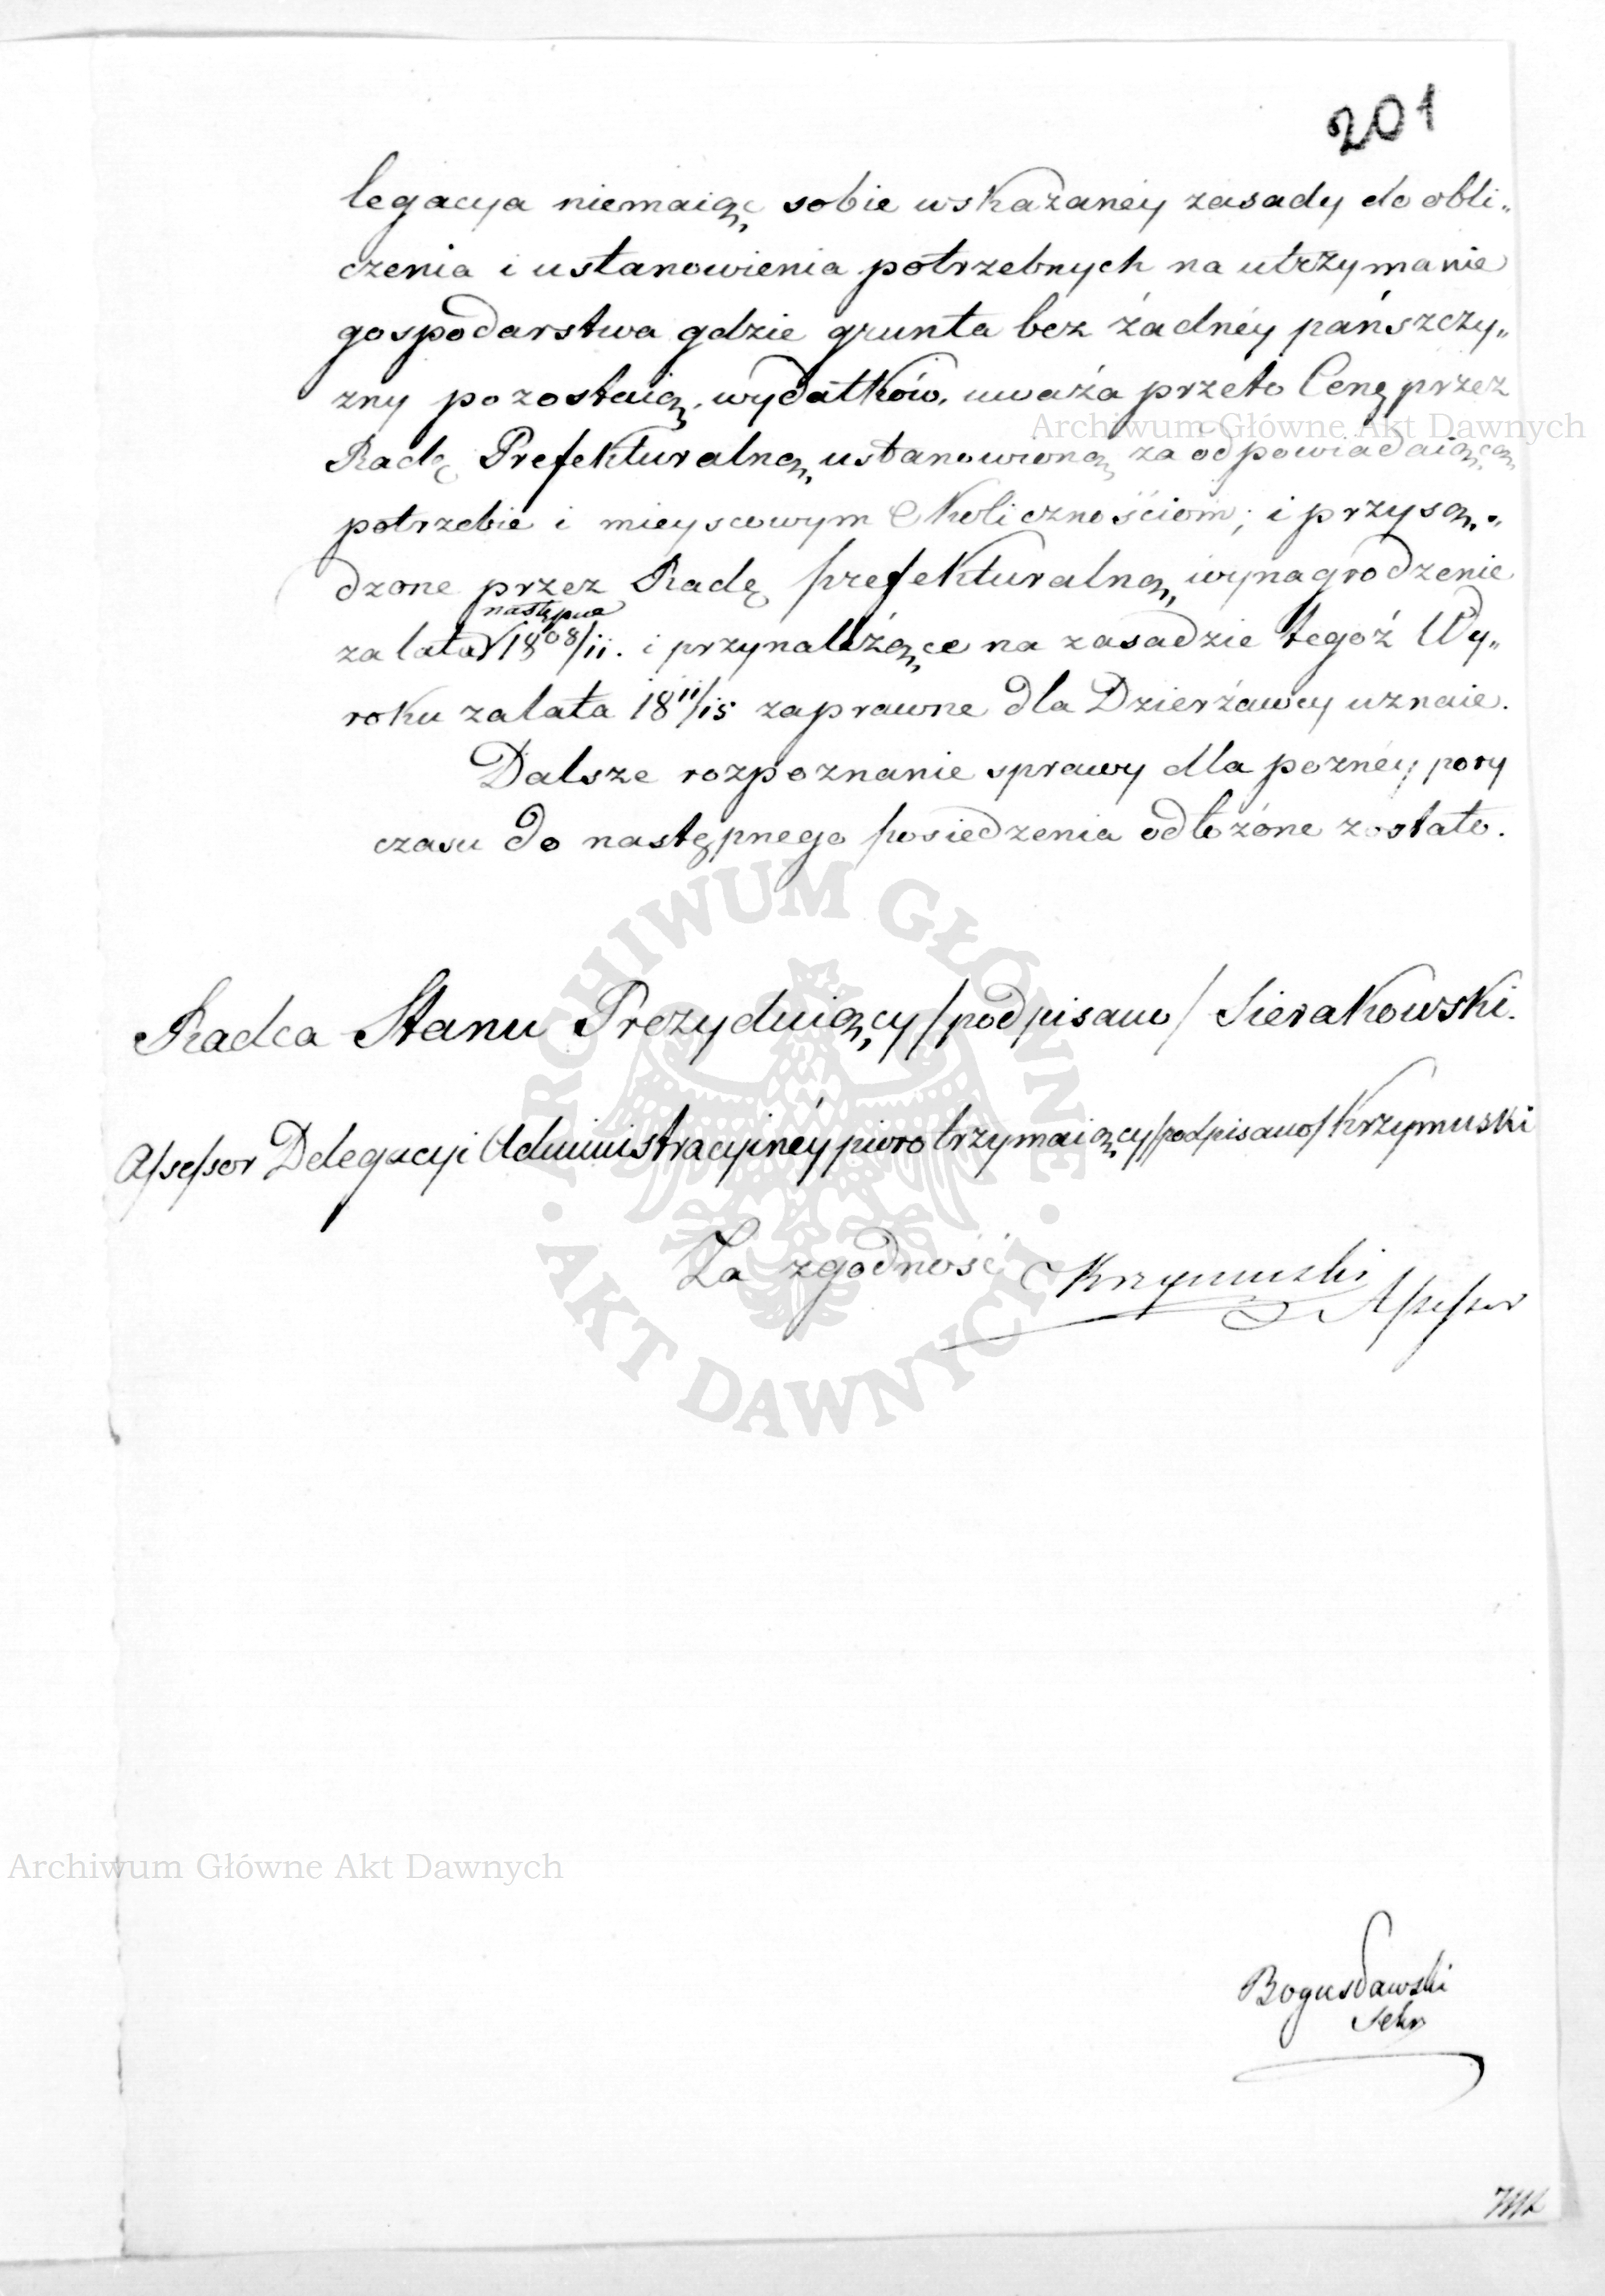 201
legacya niemaiąc sobie wskazaney zasady do obli„
czenia i ustanowienia potrzebnych na utrzymanie
gospodarstwa gdzie grunta bez żadnéy pańszczy„
zny pozostaią, wydatków, uważa przeto Cenę przez
Archiwum Główne Akt Dawnych
Radę Prefekturalną ustanowioną za odpowiadaiącą
potrzebie i mieyscowym Okolicznościom; i przysą„
dzone przez Radę prefekturalną, wynagrodzenie
następne
za lata 1808/11. i przynależące na zasadzie tegoż Wy„
roku za lata 1811/15 za prawne dla Dzierżawcy uznaie.
Dalsze rozpoznanie sprawy dla pozney pory
czasu do następnego posiedzenia odłożone zostało.
ARCHIWUM GŁÓWNE AKT DAWNYCH
Radca Stanu Prezyduiący /podpisano/ Sierakowski.
Assessor Delegacyi Administracyinéy pioro trzymaiący /podpisano/ Krzymuski
Za zgodność Krzymuski
Assessor
Archiwum Główne Akt Dawnych
Bogusławski
Sekr